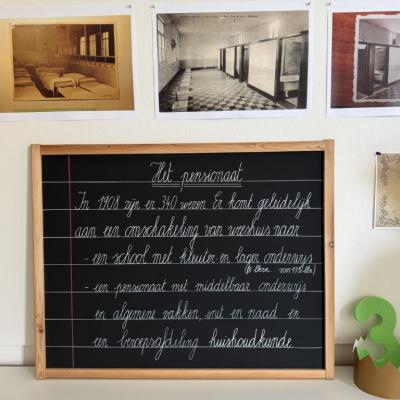 Het pensionaat
In 1908 zijn er 340 wezen. Er komt geleidelijk
aan een omschakeling van weeshuis naar
- een school met kleuter- en lager onderwijs
- een pensionaat met middelbaar onderwijs
en algemene vakken, snit en naad en
een beroepsafdeling huishoudkunde
3